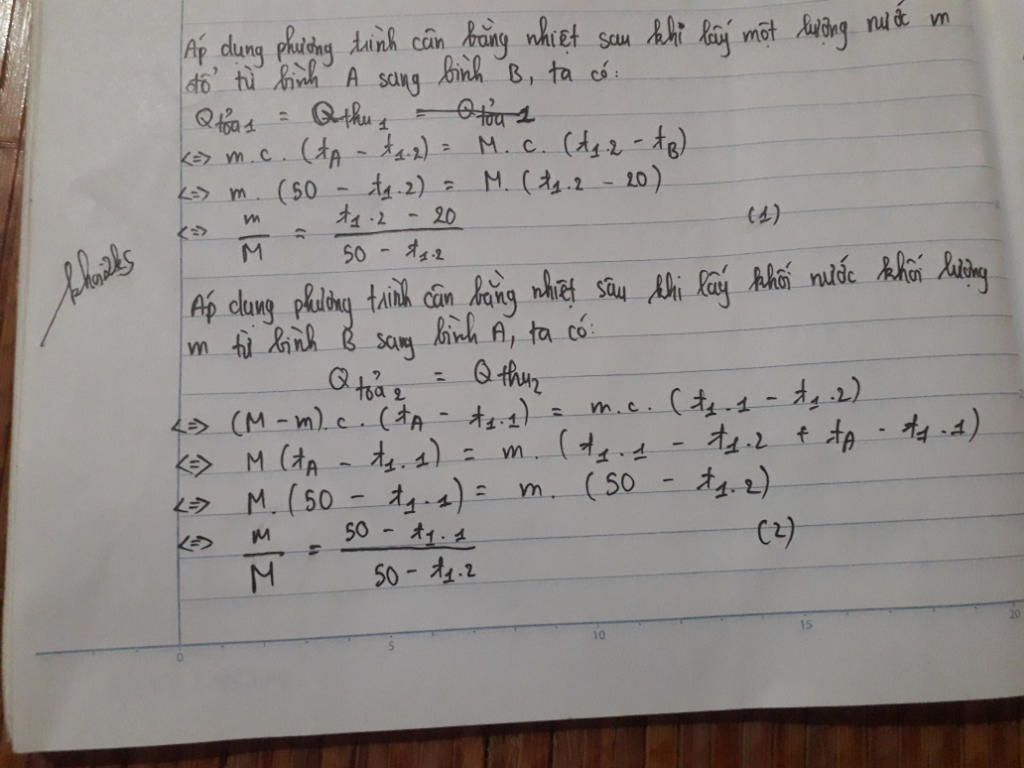 Áp dụng phương trình cân bằng nhiệt sau khi lấy một lượng nước m
đổ từ bình A sang bình B, ta có:
Qtỏa1 = Qthu1 = Qtỏa1
<=> m.c.(tA - t1.2) = M.c.(t1.2 - tB)
<=> m.(50 - t1.2) = M.(t1.2 - 20)
<=> m/M = (t1.2 - 20)/(50 - t1.2) (1)
khoi2k5
Áp dụng phương trình cân bằng nhiệt sâu khi lấy khối nước khối lượng
m từ bình B sang bình A, ta có:
Qtỏa2 = Qthu2
<=> (M-m).c.(tA - t1.1) = m.c.(t1.1 - t1.2)
<=> M(tA - t1.1) = m.(t1.1 - t1.2 + tA - t1.1)
<=> M.(50 - t1.1) = m.(50 - t1.2)
<=> m/M = (50 - t1.1)/(50 - t1.2) (2)
0 5 10 15 20